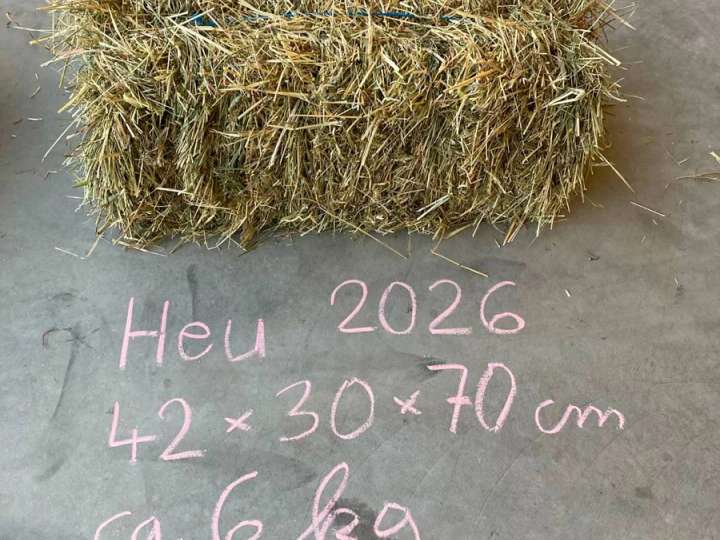 Heu 2026
42 × 30 × 70 cm
ca. 6 kg